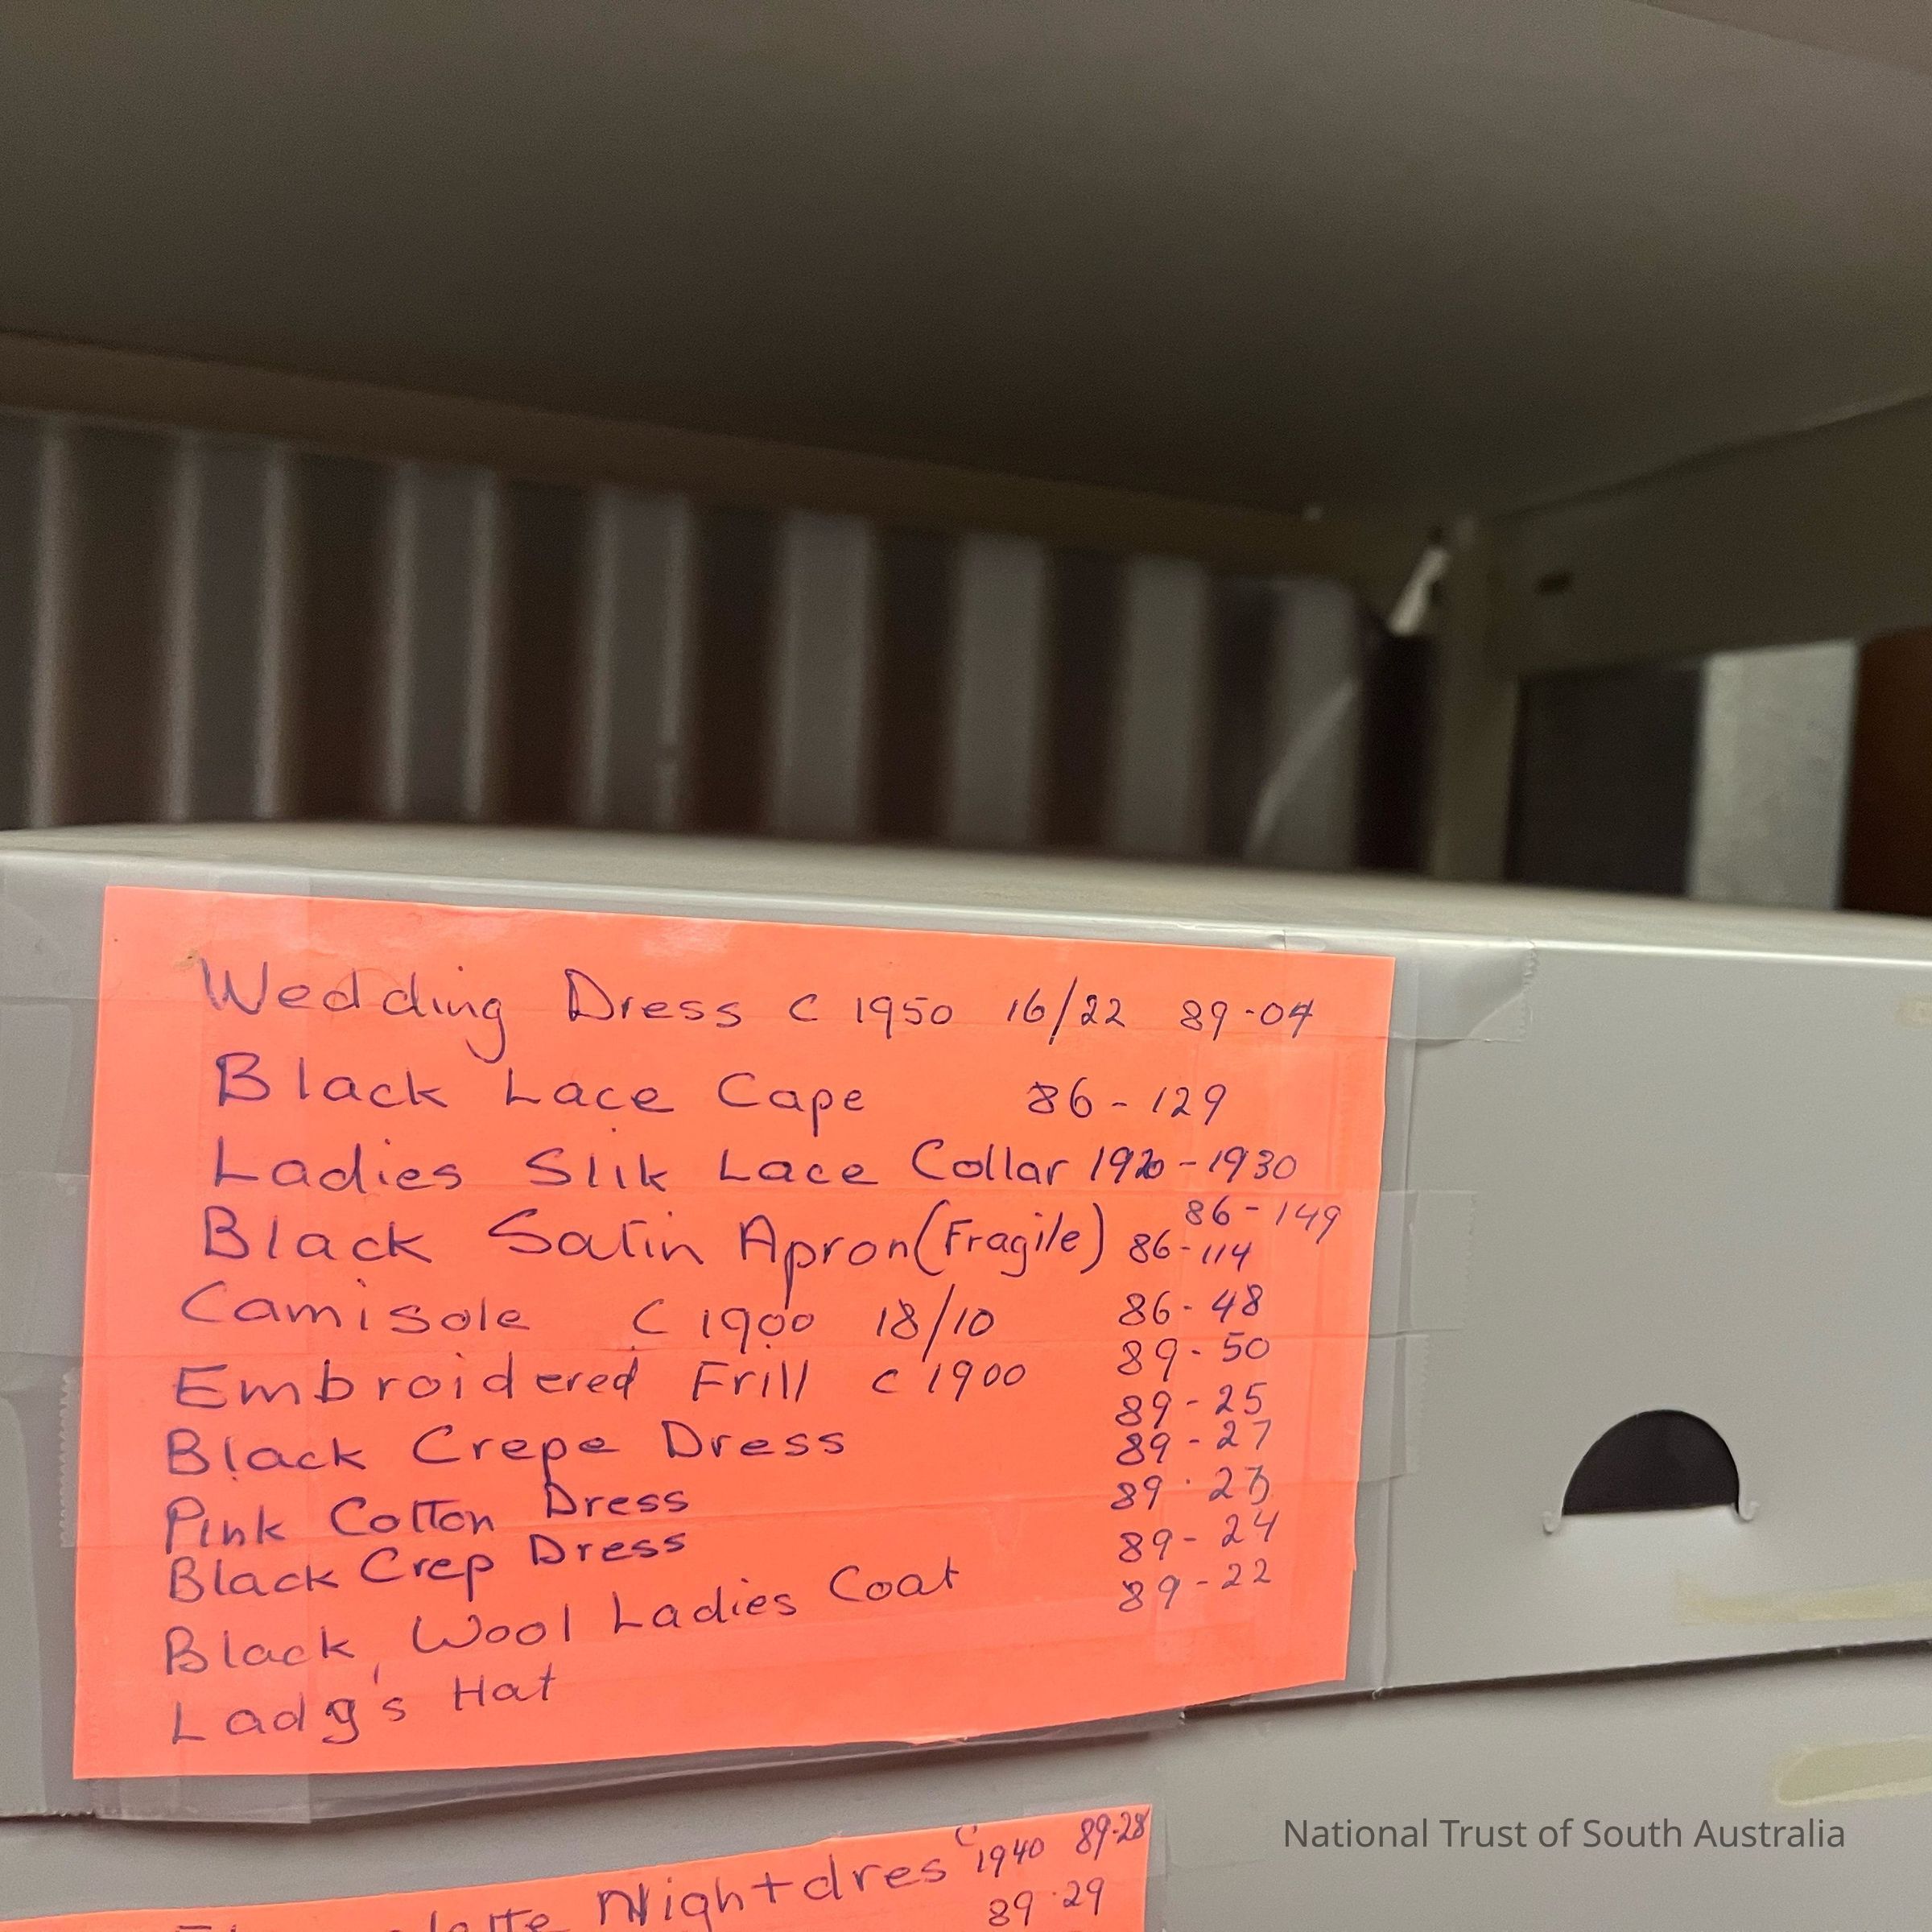 Wedding Dress c 1950 16/22 89-04
Black Lace Cape 86-129
Ladies Slik Lace Collar 1920-1930
86-149
Black Satin Apron (Fragile) 86-114
Camisole C 1900 18/10 86-48
Embroidered Frill c 1900 89-50
Black Crepe Dress 89-25
Pink Cotton Dress 89-27
Black Crep Dress 89-23
Black Wool Ladies Coat 89-24
Lady's Hat 89-22
Nightdres c 1940 89-28
89-29
National Trust of South Australia